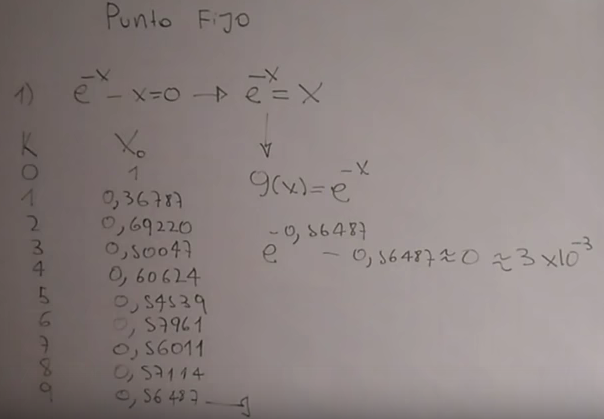 Punto Fijo
1) e^-x - x=0 → e^-x = x
K X₀
0 1
g(x)=e^-x
1 0,36787
2 0,69220
e^-0,56487 - 0,56487≈0 ≈3x10^-3
3 0,50047
4 0,60624
5 0,54539
6 0,57961
7 0,56011
8 0,57114
9 0,56487